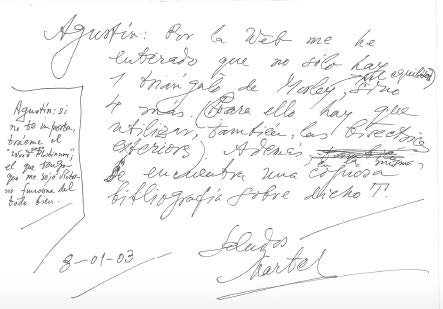 Agustín: Por la Web me he
enterado que no sólo hay
1 triángulo de Morley, (el equilátero) sino
4 más. (Para ello hay que
utilizar, también, las bisectrices
exteriores) Además,
Se encuentra una copiosa
bibliografía sobre dicho T.
Saludos
Martel
8-01-03
Agustín: si
no te importa,
tráeme el
el que tengo
que me dejó
no funciona del
todo bien.